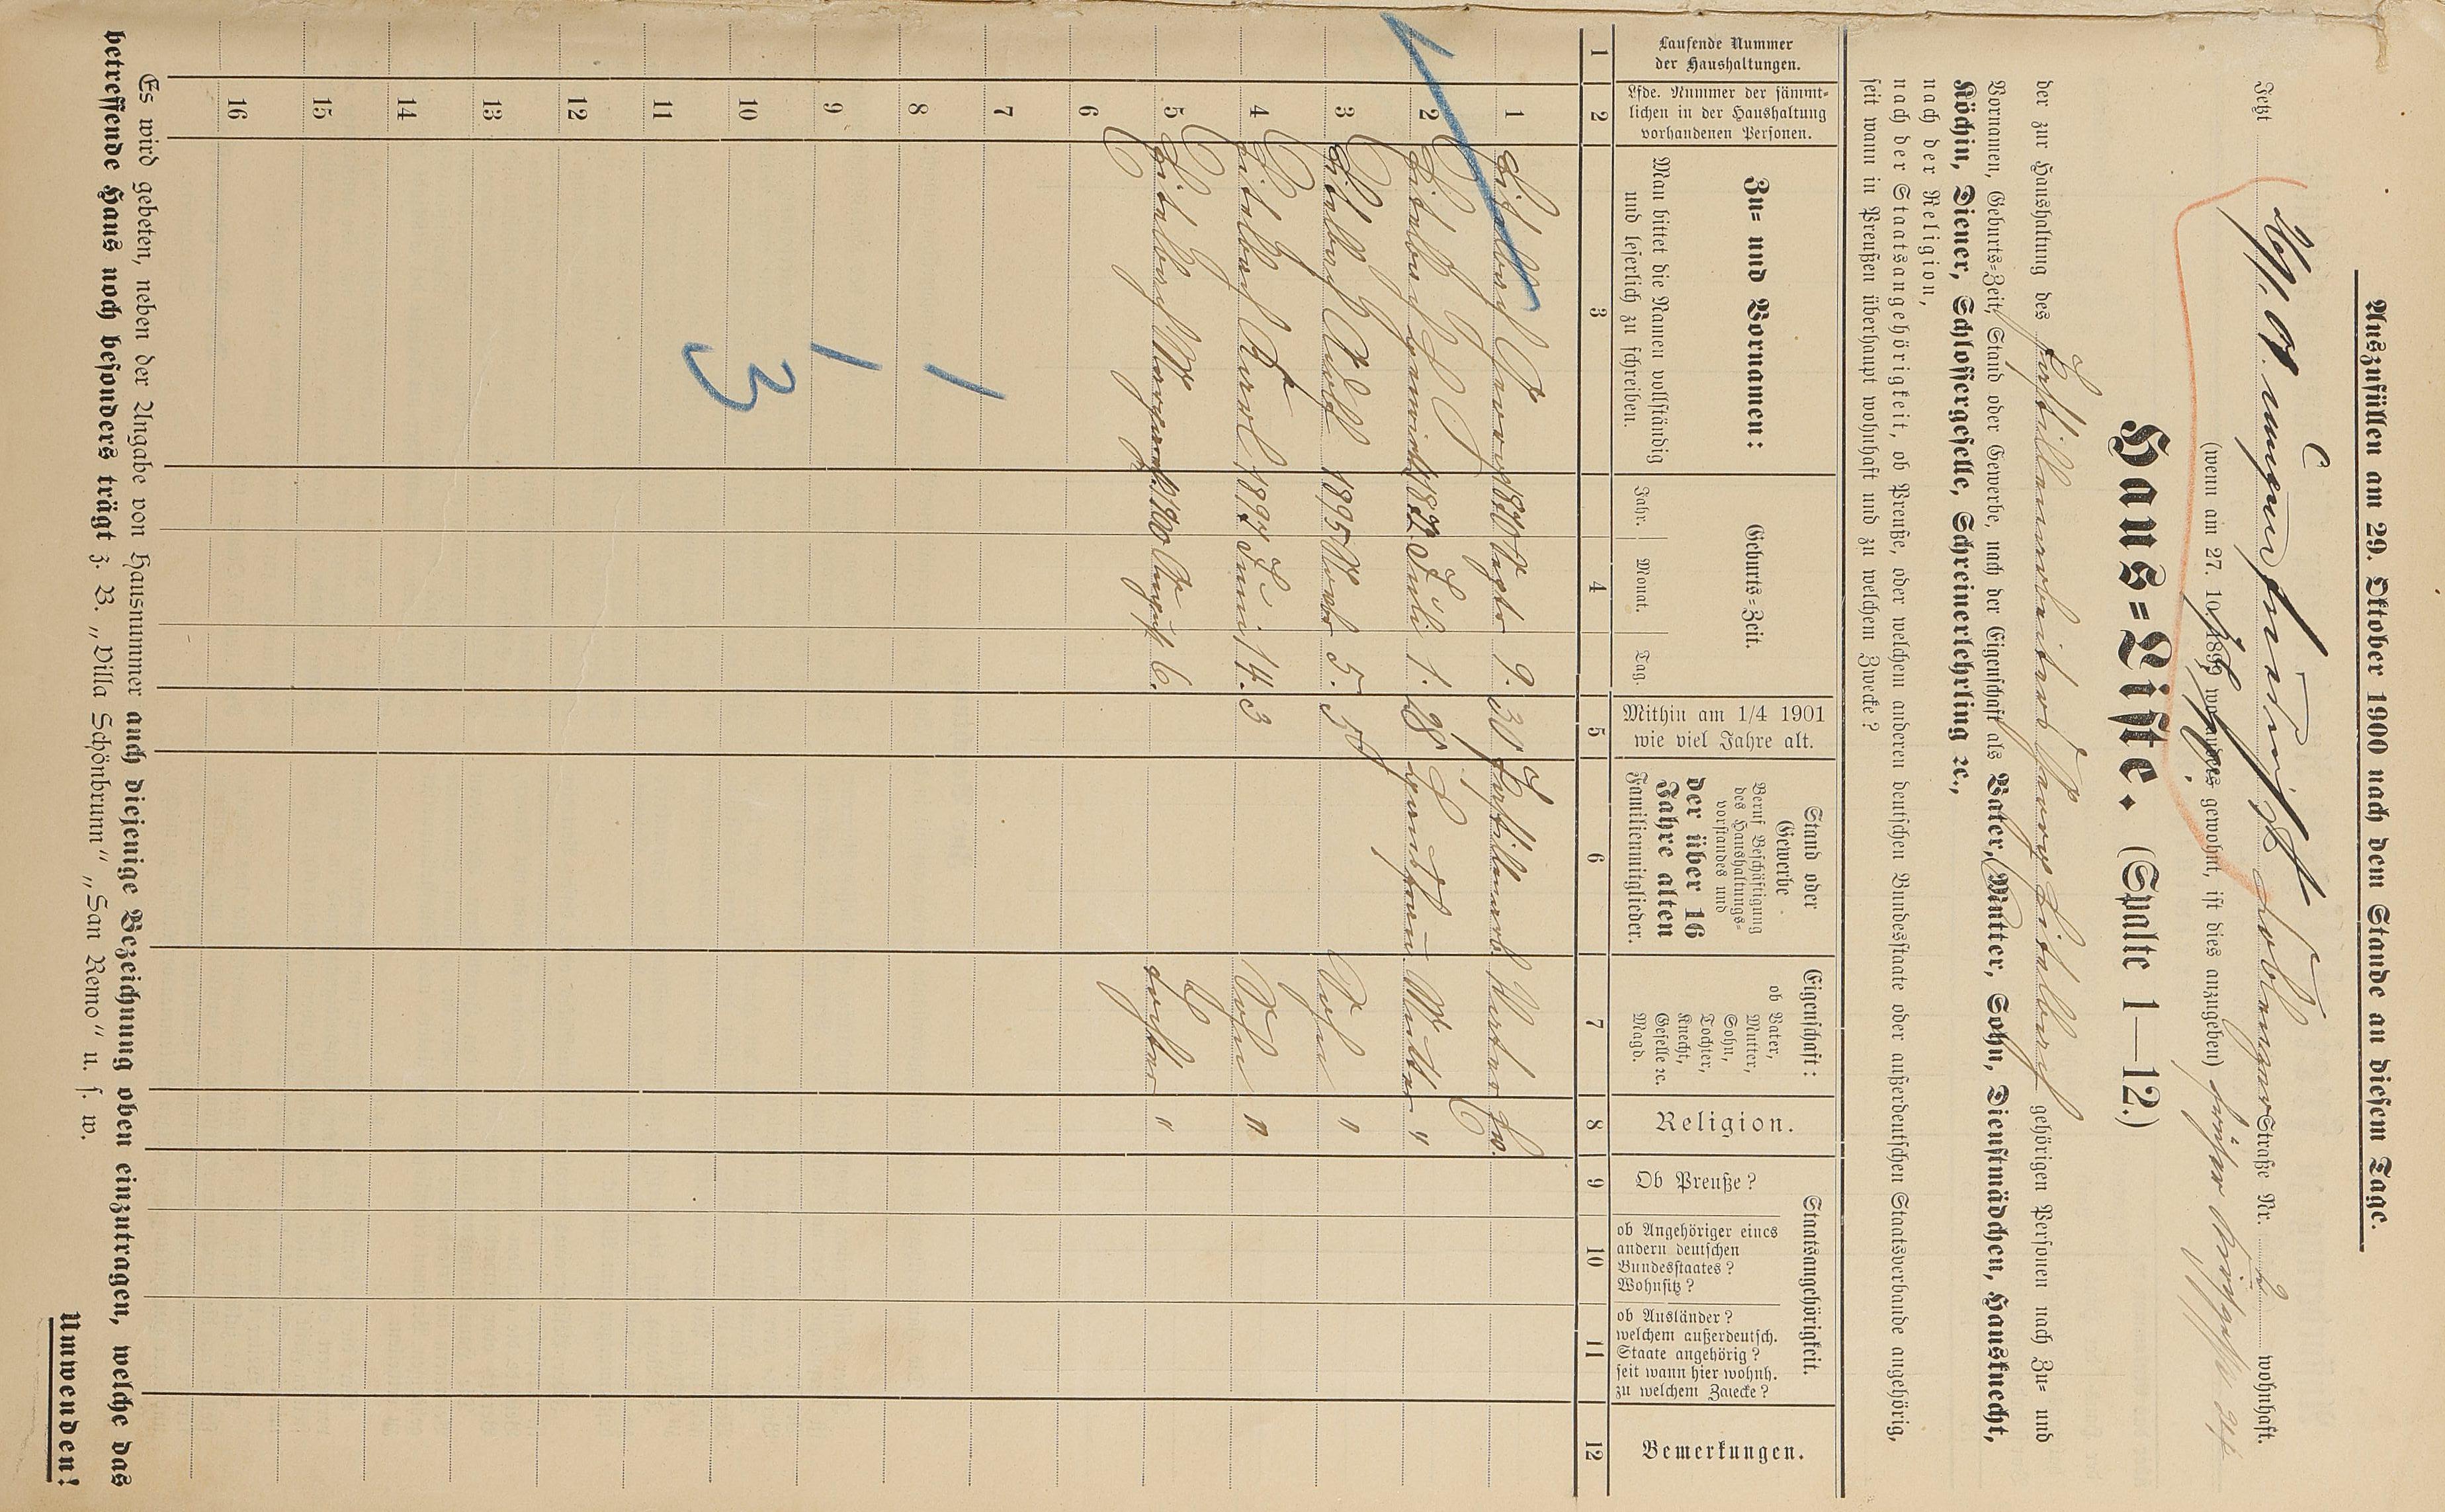 Auszufüllen am 29. Oktober 1900 nach dem Stande an diesem Tage.
Jetzt Straße Nr. 2 wohnhaft.
(wenn am 27. 10. 1899 wo anders gewohnt, ist dies anzugeben) früher
Haus=Liste. (Spalte 1—12.)
der zur Haushaltung des gehörigen Personen nach Zu= und
Vornamen, Geburts=Zeit, Stand oder Gewerbe, nach der Eigenschaft als Vater, Mutter, Sohn, Dienstmädchen, Hausknecht,
Köchin, Diener, Schlossergeselle, Schreinerlehrling ec.,
nach der Religion,
nach der Staatsangehörigkeit, ob Preuße, oder welchem anderen deutschen Bundesstaate oder außerdeutschen Staatsverbande angehörig,
seit wann in Preußen überhaupt wohnhaft und zu welchem Zwecke?
Laufende Nummer der Haushaltungen.
Lfde. Nummer der sämmt=lichen in der Haushaltung vorhandenen Personen.
Zu= und Vornamen:
Man bittet die Namen vollständig und leserlich zu schreiben.
Geburts=Zeit.
Jahr. Monat. Tag.
Mithin am 1/4 1901 wie viel Jahre alt.
Stand oder Gewerbe
Beruf Beschäftigung des Haushaltungs=vorstandes und
der über 16 Jahre alten Familienmitglieder.
Eigenschaft:
ob Vater, Mutter, Sohn, Tochter, Knecht, Geselle ec. Magd.
Religion.
Staatsangehörigkeit.
Ob Preuße?
ob Angehöriger eines andern deutschen Bundesstaates? Wohnsitz?
ob Ausländer? welchem außerdeutsch. Staate angehörig? seit wann hier wohnh. zu welchem Zwecke?
Bemerkungen.
1 2 3 4 5 6 7 8 9 10 11 12
1 Georg 1870 Septb 9. 30 Vater Ev.
2 Juli 1. 28 Mutter "
3 Adolf 1895 Novb 5. 5 Sohn "
4 Karl 1897 Juni 14. 3 Sohn "
5 Margareth 1900 August 6. Tochter "
6
7
8
9
10
11
12
13
14
15
16
1
1
3
Es wird gebeten, neben der Angabe von Hausnummer auch diejenige Bezeichnung oben einzutragen, welche das
betreffende Haus noch besonders trägt z. B. „Villa Schönbrunn" „San Remo" u. s. w.
Umwenden!